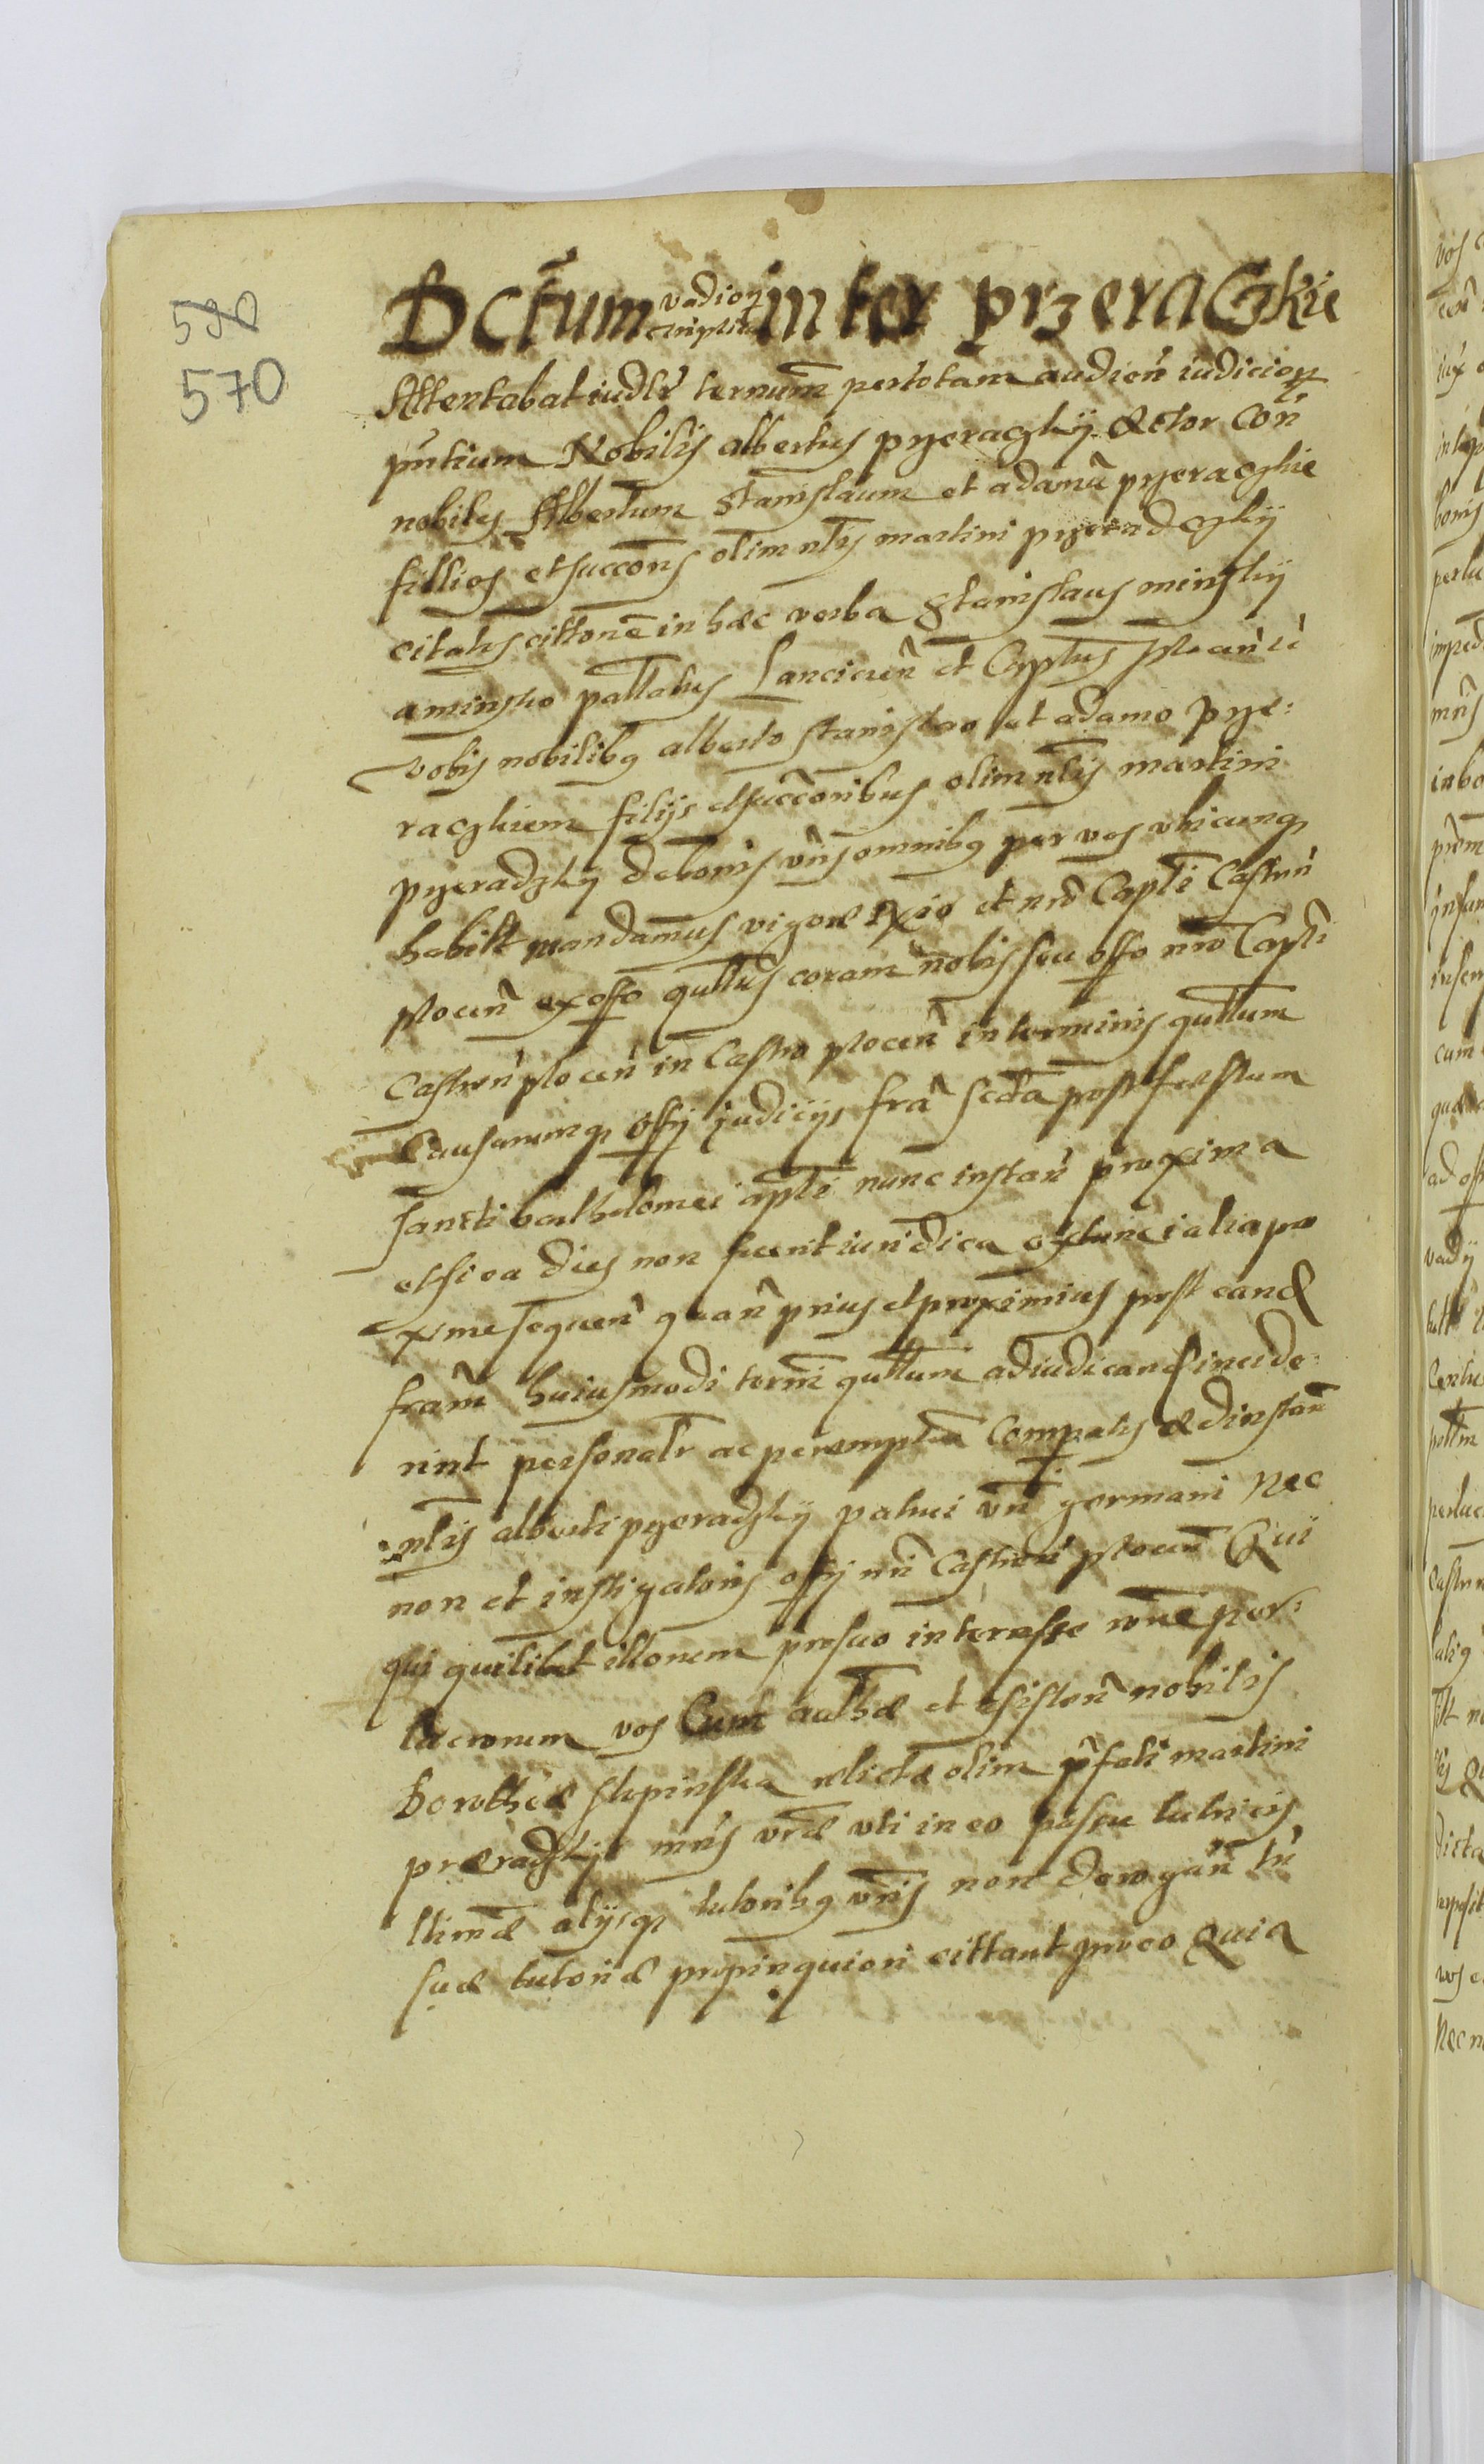 590
570
Dctum vadiorum
triplicis inter przeraczkie
Attentabat iudlr̃ ternum̃ per totam audien̄ iudicior
pn̄tium Nobilis albertus przeraczkij Actor Con̄
nobiles Albertum Stanislaum et adamū przeraczkie
fillios et succorēs olim nlis martini przeradczkij
citatus cittonē in hæc verba Stanislaus minskij
a minsko pallatus Lancicien̄ et Captus plocen̄
vobis nobilibq alberto stanislao et adamo prze:
raczkiem filijs et succoribus olim nlis martini
przeradzkij de bonis vr̄is omnibq per vos vbicunq
habitt mandamus vigore et nrō Capti Castren̄
plocen̄ ex offo qullus coram nobis seu offo nrō Capti
Castren̄ plocen̄ in Castro plocen̄ in terminis qullum
Causarumq offij judicijs frā scda post festum
sancti barthelomei apli nunc instan̄ proxima
et si ea dies non fuerit iuridica extunc in alia pro
xime sequen̄ quam̄ prius et proximius post eand
fram̄ huiusmodi term̄i qullum adiudicand incide:
rint personalr̄ ac peremptē Compatis Ad instan̄
nlis alberti przeradzkij patrui vr̄i germani Nec
non et instigatoris offij nr̄i Castren̄ plocen̄ Qui
qui quilibet illorum pro suo interesse rōne per:
lucrorum vos Cum authæ et assisten̄ nobilis
Dorotheæ slepinska relictæ olim prfati martini
przeradzkij mr̄is vræ vti in eo passu tutricis
ltimæ alijsq tutoribq vr̄is non derogan̄ tn̄
suæ tutoriæ propinquiori cittant pro eo Quia